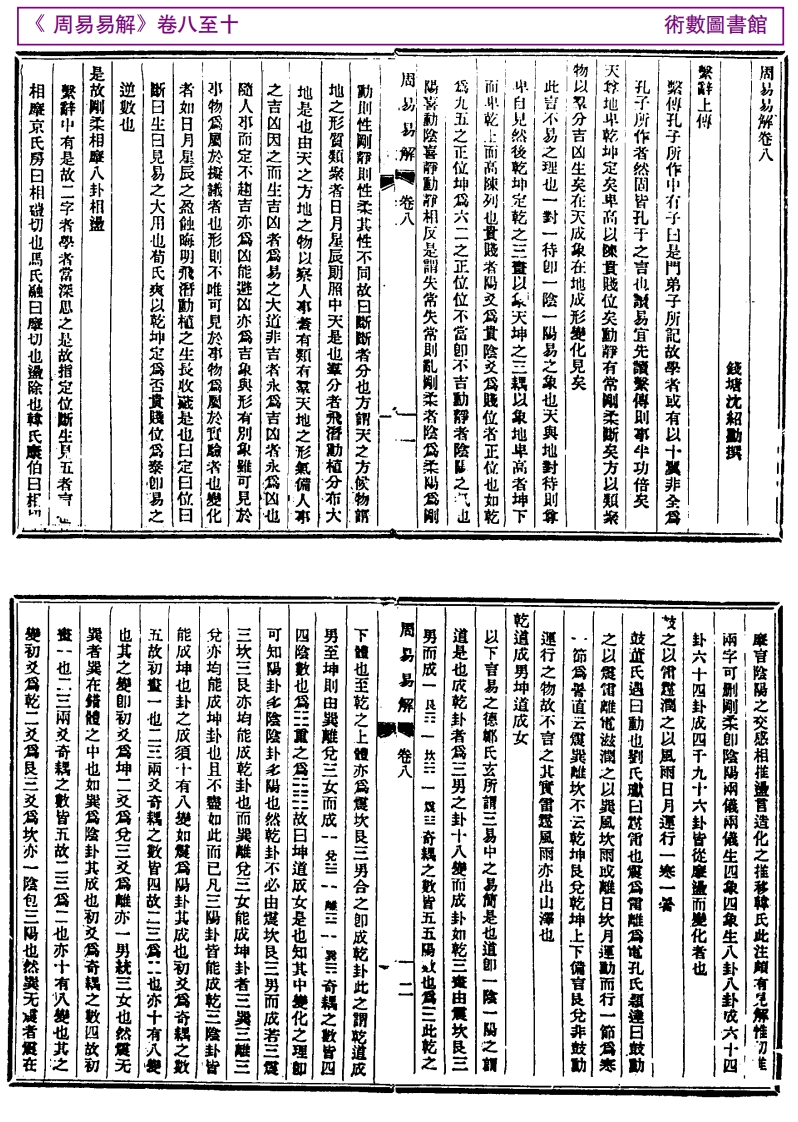 《 周易易解》卷八至十
術數圖書館
周易易解卷八
錢塘沈紹勳撰
繫辭上傳
繫傳孔子所作中有子曰是門弟子所記故學者或有以十翼非全爲
孔子所作者然固皆孔子之言也讀易宜先讀繫傳則事半功倍矣
天尊地卑乾坤定矣卑高以陳貴賤位矣動靜有常剛柔斷矣方以類聚
物以羣分吉凶生矣在天成象在地成形變化見矣
此言不易之理也一對一待卽一陰一陽易之象也天與地對待則尊
卑自見然後乾坤定乾之三畫以象天坤之三耦以象地卑高者坤下
而卑乾上而高陳列也貴賤者陽爻爲貴陰爻爲賤位者正位也如乾
爲九五之正位坤爲六二之正位位不當卽不吉動靜者陰陽之氣也
陽喜動陰喜靜動靜相反是謂失常失常則亂剛柔者陰爲柔陽爲剛
周易易解
卷八
一
動則性剛靜則性柔其性不同故曰斷斷者分也方謂天之方候物謂
地之形質類聚者日月星辰期照中天是也羣分者飛潛動植分布大
地是也由天之方地之物以察人事蓋有類有羣天地之形氣備人事
之吉凶因之而生吉凶者爲易之大道非吉者永爲吉凶者永爲凶也
隨人事而定不趨吉亦爲凶能避凶亦爲吉象與形有別象雖可見於
事物爲屬於擬議者也形則不唯可見於事物爲屬於實驗者也變化
者如日月星辰之盈蝕晦明飛潛動植之生長收藏是也曰定曰位曰
斷曰生曰見易之大用也荀氏爽以乾坤定爲否貴賤位爲泰卽易之
逆數也
是故剛柔相摩八卦相盪
繫辭中有是故二字者學者當深思之是故指定位斷生見五者言
相摩京氏房曰相磑切也馬氏融曰摩切也盪除也韓氏康伯曰相切
摩言陰陽之交感相推盪言造化之推移韓氏此注頗有見解惟切
兩字可刪剛柔卽陰陽兩儀兩儀生四象四象生八卦八卦成六十四
卦六十四卦成四千九十六卦皆從摩盪而變化者也
鼓之以雷霆潤之以風雨日月運行一寒一暑
鼓董氏遇曰動也劉氏瓛曰霆雷也震爲雷離爲電孔氏穎達曰鼓動
之以震雷離電滋潤之以巽風坎雨或離日坎月運動而行一節爲寒
一節爲暑直云震巽離坎不云乾坤艮兌乾坤上下備言艮兌非鼓動
運行之物故不言之其實雷霆風雨亦出山澤也
乾道成男坤道成女
以下言易之德鄭氏玄所謂三易中之易簡是也道卽一陰一陽之謂
道是也成乾卦者爲三男之卦十八變而成卦如乾三畫由震坎艮三
男而成一艮☶一坎☵一震☳奇耦之數皆五五陽數也爲☰此乾之
周易易解
卷八
二
下體也至乾之上體亦爲震坎艮三男合之卽成乾卦此之謂乾道成
男至坤則由巽離兌三女而成一兌☱一離☲一巽☴奇耦之數皆四
四陰數也爲☷重之爲☷☷故曰坤道成女是也知其中變化之理卽
可知陽卦多陰陰卦多陽也然乾卦不必由震坎艮三男而成若三震
三坎三艮亦均能成乾卦也而巽離兌三女能成坤卦者三巽三離三
兌亦均能成坤卦也且不盡如此而已凡三陽卦皆能成乾三陰卦皆
能成坤也卦之成須十有八變如震爲陽卦其成也初爻爲奇耦之數
五故初畫一也二三兩爻奇耦之數皆四故二三爲二也亦十有八變
也其之變卽初爻爲坤二爻爲兌三爻爲離亦一男統三女也然震无
巽者巽在錯體之中也如巽爲陰卦其成也初爻爲奇耦之數四故初
畫一也二三兩爻奇耦之數皆五故二三爲二也亦十有八變也其之
變初爻爲乾二爻爲艮三爻爲坎亦一陰包三陽也然巽无震者震在